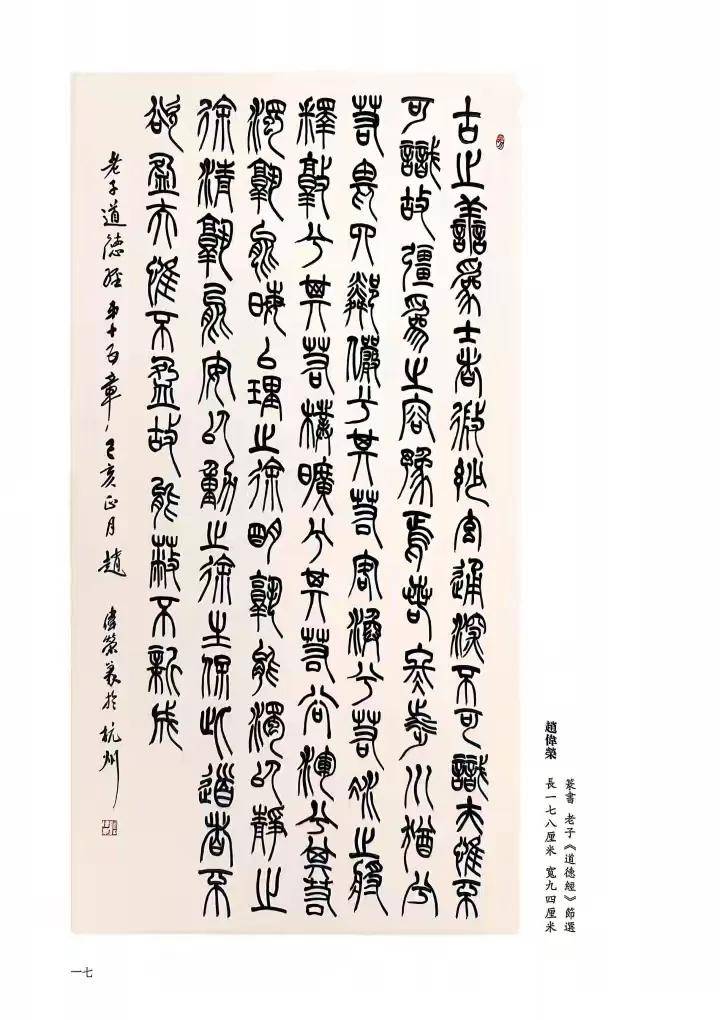 古之善為士者微妙玄通深不可識夫惟不
可識故彊為之容豫焉若冬涉川猶兮
若畏四鄰儼兮其若客渙兮若冰之將
釋敦兮其若樸曠兮其若谷渾兮其若
濁孰能晦以理之徐明孰能濁以靜之
徐清孰能安以動之徐生保此道者不
欲盈夫惟不盈故能蔽不新成
老子道德經第十五章 己亥正月 趙偉榮篆於杭州
趙偉榮
篆書 老子《道德經》節選
長一七八厘米 寬九四厘米
一七